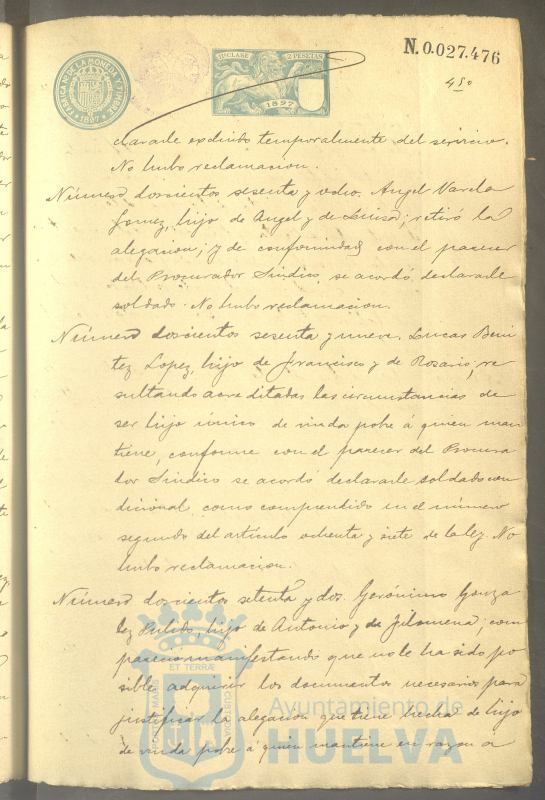 N. 0.027.476
FABRICA N. DE LA MONEDA Y TIMBRE
1897
11ª CLASE 2 PESETAS
1897
450
clararle excluido temporalmente del servicio.
No hubo reclamacion.
Número doscientos sesenta y ocho. Angel Varela
Gomez, hijo de Angel y de Luisa; retiró la
alegacion; y de conformidad con el parecer
del Procurador Sindico, se acordó declararle
soldado. No hubo reclamacion.
Número doscientos sesenta y nueve. Lucas Beni
tez Lopez, hijo de Francisco y de Rosario, re
sultando acreditadas las circunstancias de
ser hijo único de viuda pobre á quien man
tiene, conforme con el parecer del Procura
dor Sindico se acordó declararle soldado con
dicional, como comprendido en el número
segundo del artículo ochenta y siete de la ley. No
hubo reclamacion.
Número doscientos setenta y dos. Gerónimo Gonza
lez Pulido, hijo de Antonio y de Filomena; com
pareció manifestando que no le ha sido po
sible adquirir los documentos necesarios para
justificar la alegación que tiene hecha de hijo
de viuda pobre á quien mantiene en razon a
ET TERRÆ
Ayuntamiento de
HUELVA